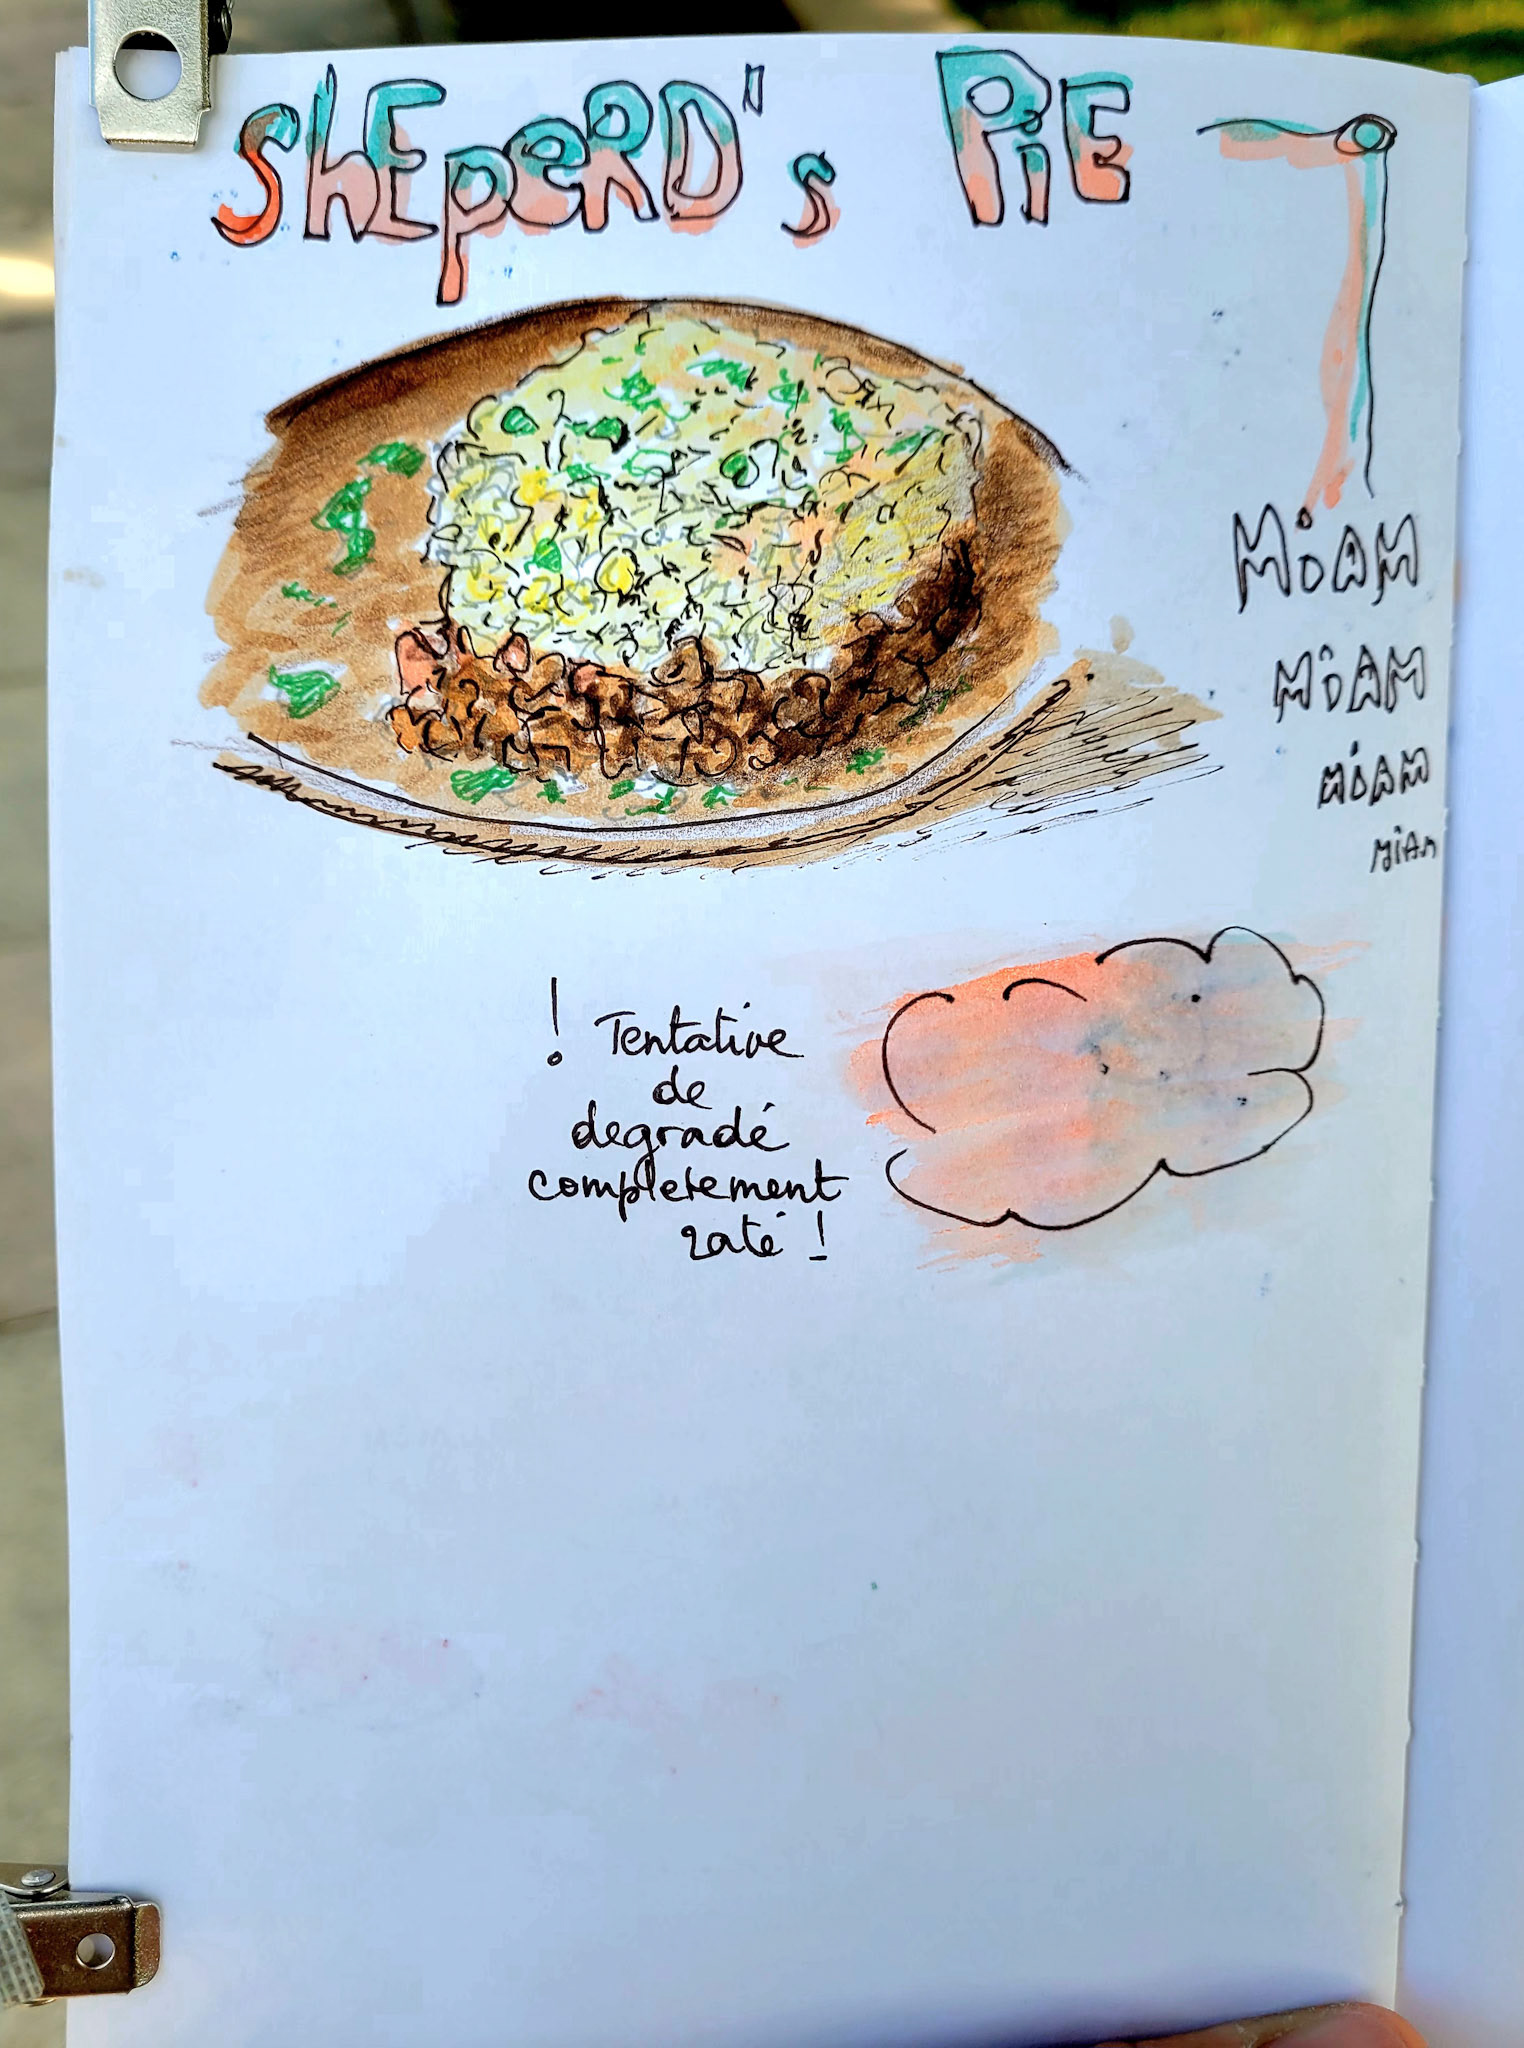 ShEpeRD's PiE
MiAM
MiAM
MiAM
MiAM
! Tentative
de
degradé
completement
raté !